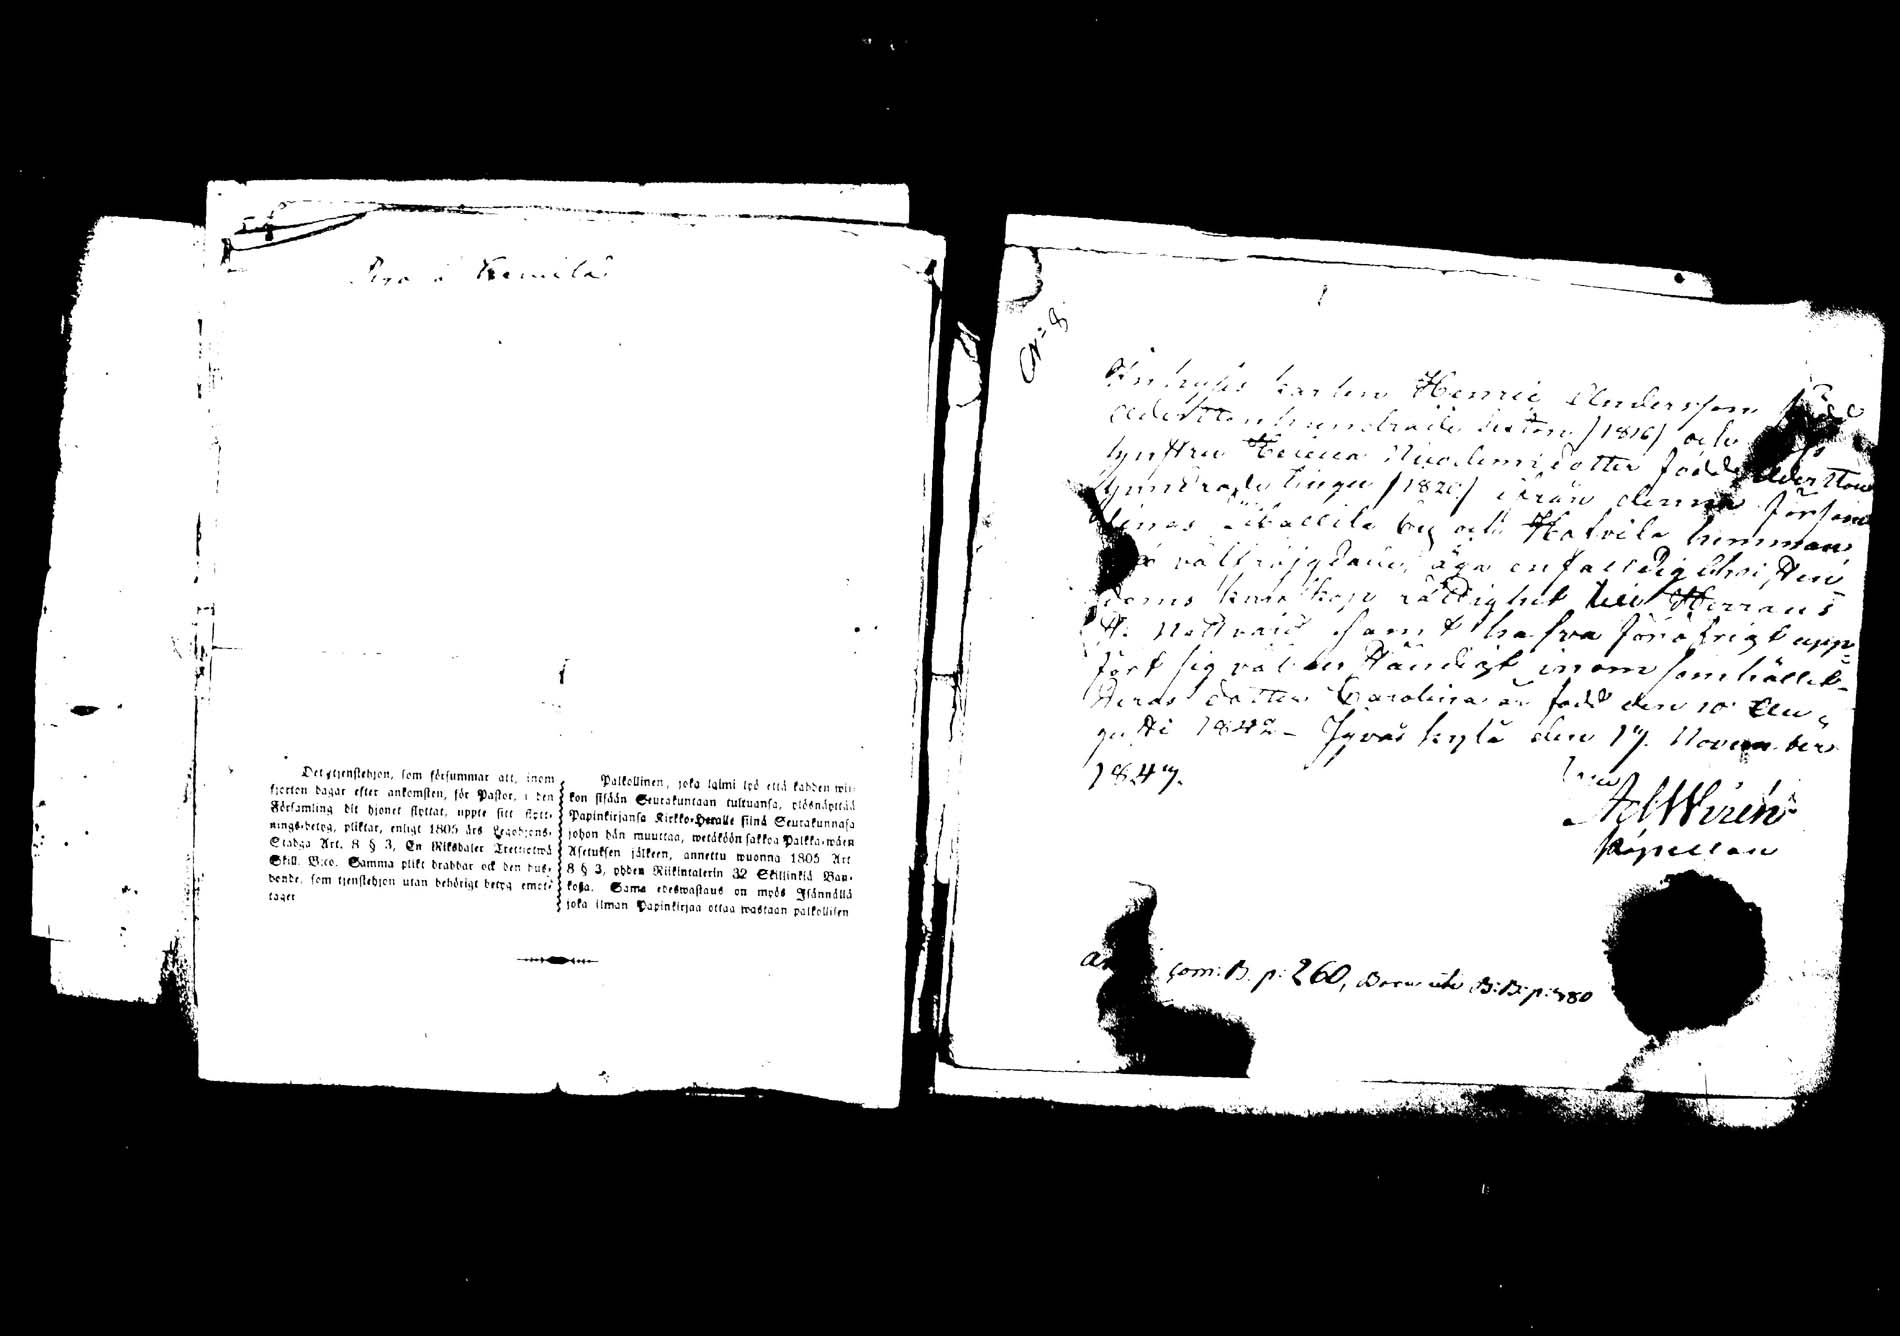 Det tjenstehjon, som försummar att, inom
fjorton dagar efter ankomsten, för Pastor, i den
Församling dit hjonet flyttat, uppte sitt flytt-
nings-betyg, pliktar, enligt 1805 års Legohjons-
Stadga Art. 8 § 3, En Riksdaler Trettiotwå
Skill. B:co. Samma plikt drabbar ock den hus-
bonde, som tjenstehjon utan behörigt betyg emot-
tager
Palkollinen, joka laimi lyö että kahden wii-
kon sisään Seurakuntaan tultuansa, ylösnäyttää
Papinkirjansa Kirkko-Heralle siinä Seurakunnasa
johon hän muuttaa, wetäköön sakkoa Palkka-wäen
Asetuksen jälkeen, annettu wuonna 1805 Art
8 § 3, yhden Riikintalerin 32 Skillinkiä Ban-
kosa. Sama edeswastaus on myös Isännällä
joka ilman Papinkirjaa ottaa wastaan palkollisen
N:8
Inhyses karlen Henric Andersson född
Adertonhundrade sexton /1816/ och
hustru Helena Nicodemidotter född Aderton
hundrade tjugu /1820/ ifrån denna försam-
lings by och hemman
äro välfräjdade, äga enfaldig Christen
doms kunskap rättighet till Herrans
H: Nattvard samt hafva föröfrigt upp-
fört sig väl anständigt inom samhället-
Deras dotter Carolina är född den 10 Au-
gusti 1842 - Jyväskylä den 17. November
1847.
Wirén
Kapellan
Com: B. p: 260, B: B: p: 780